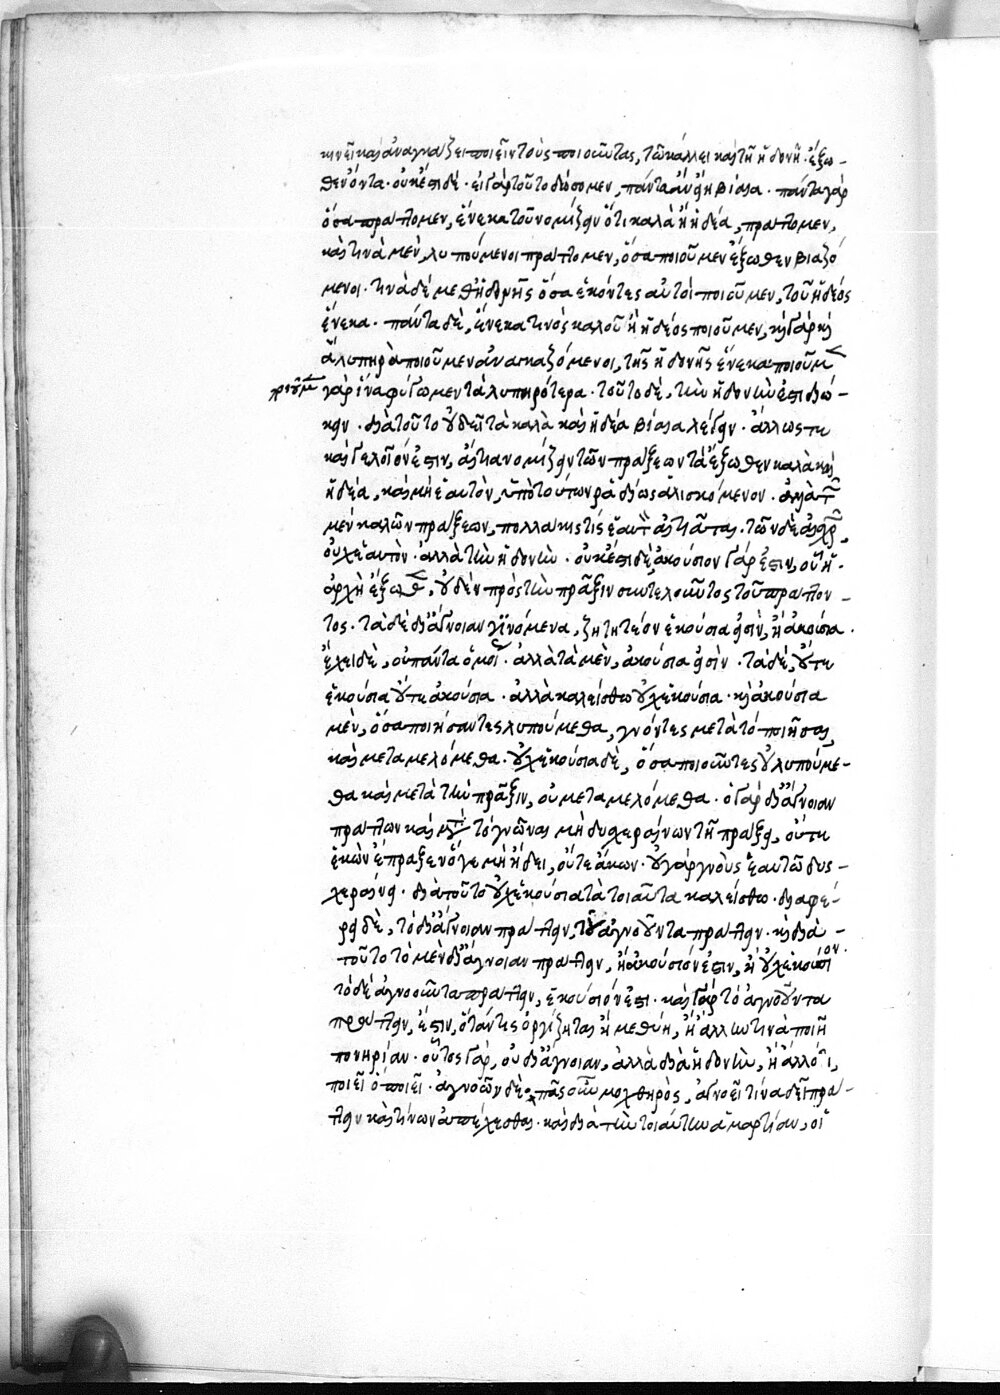 κινεῖ καὶ ἀναγκάζει ποιεῖν τοὺς ποιοῦντας, τῷ κάλλει καὶ τῇ ἡδονῇ ἔξω-
θεν ὄντα. οὐκ ἔστι δέ. εἰ γὰρ τοῦτο δώσομεν, πάντα ἂν εἴη βίαια. πάντα γὰρ
ὅσα πράττομεν, ἕνεκα τοῦ νομίζειν ὅτι καλὰ ἢ ἡδέα, πράττομεν,
καὶ τινὰ μὲν, λυπούμενοι πράττομεν, ὅσα ποιοῦμεν ἔξωθεν βιαζό
μενοι. τινὰ δὲ μεθ' ἡδονῆς ὅσα ἑκόντες αὐτοὶ ποιοῦμεν, τοῦ ἡδέος
ἕνεκα. πάντα δὲ, ἕνεκα τινὸς καλοῦ ἢ ἡδέος ποιοῦμεν, καὶ γὰρ καὶ
ἃ λυπηρὰ ποιοῦμεν ἀναγκαζόμενοι, τῆς ἡδονῆς ἕνεκα ποιοῦμεν
γὰρ ἵνα φύγωμεν τὰ λυπηρότερα. τοῦτο δὲ, τὴν ἡδονὴν ἐπιδιώ-
κειν. διὰ τοῦτο οὐ δεῖ τὰ καλὰ καὶ ἡδέα βίαια λέγειν. ἄλλως τε
καὶ γελοῖόν ἐστιν, αἴτια νομίζειν τῶν πράξεων τὰ ἔξωθεν καλὰ καὶ
ἡδέα, καὶ μὴ ἑαυτὸν, ὑπὸ τοιούτων ῥᾳδίως ἁλισκόμενον. ἀλλὰ τῶν
μὲν καλῶν πράξεων, πολλάκις τίς ἑαυτὸν αἰτιᾶται. τῶν δὲ αἰσχρῶν,
οὐχ ἑαυτὸν. ἀλλὰ τὴν ἡδονὴν. οὐκ ἔστι δὲ, ἀκούσιον γάρ ἐστιν, οὗ ἡ
ἀρχὴ ἔξωθεν, οὐδὲν πρὸς τὴν πρᾶξιν συντελοῦντος τοῦ πράττον-
τος. τὰ δὲ δι' ἄγνοιαν γινόμενα, ζητητέον ἑκούσια φησὶν, ἢ ἀκούσια.
ἔχει δὲ, οὐ πάντα ὁμοίως. ἀλλὰ τὰ μὲν, ἀκούσια φησὶν. τὰ δὲ, οὔτε
ἑκούσια οὔτε ἀκούσια. ἀλλὰ καλείσθω οὐχ ἑκούσια. καὶ ἀκούσια
μὲν, ὅσα ποιήσαντες λυπούμεθα, γνόντες μετὰ τὸ ποιῆσαι,
καὶ μεταμελόμεθα. οὐχ ἑκούσια δὲ, ὅσα ποιοῦντες οὐ λυπούμε-
θα καὶ μετὰ τὴν πρᾶξιν, οὐ μεταμελόμεθα. ὁ γὰρ δι' ἄγνοιαν
πράττων καὶ μετὰ τὸ γνῶναι μὴ δυσχεραίνων τῇ πράξει, οὔτε
ἑκὼν ἔπραξεν ὅ γε μὴ ᾔδει, οὔτε ἄκων. οὐ γὰρ γνοὺς ἑαυτῷ δυσ-
χεραίνει. διὰ τοῦτο οὐχ ἑκούσια τὰ τοιαῦτα καλείσθω. διαφέ-
ρει δὲ, τὸ δι' ἄγνοιαν πράττειν, τοῦ ἀγνοοῦντα πράττειν. καὶ διὰ
τοῦτο τὸ μὲν δι' ἄγνοιαν πράττειν, ἢ ἀκούσιόν ἐστιν, ἢ οὐχ ἑκούσιον.
τὸ δὲ ἀγνοοῦντα πράττειν, ἑκούσιόν ἐστι. καὶ γὰρ τὸ ἀγνοοῦντα
πράττειν, ἐστιν, ὅταν τις ὀργίζηται ἢ μεθύῃ, ἢ ἄλλην τινὰ ποιῇ
πονηρίαν. οὗτος γὰρ, οὐ δι' ἄγνοιαν, ἀλλὰ διὰ ἡδονὴν, ἢ ἄλλό τι,
ποιεῖ ὃ ποιεῖ. ἀγνοῶν δὲ. πᾶς οὖν μοχθηρὸς, ἀγνοεῖ τίνα δεῖ πρά-
ττειν καὶ τίνων ἀπέχεσθαι. καὶ διὰ τὴν τοιαύτην ἁμαρτίαν, οἱ